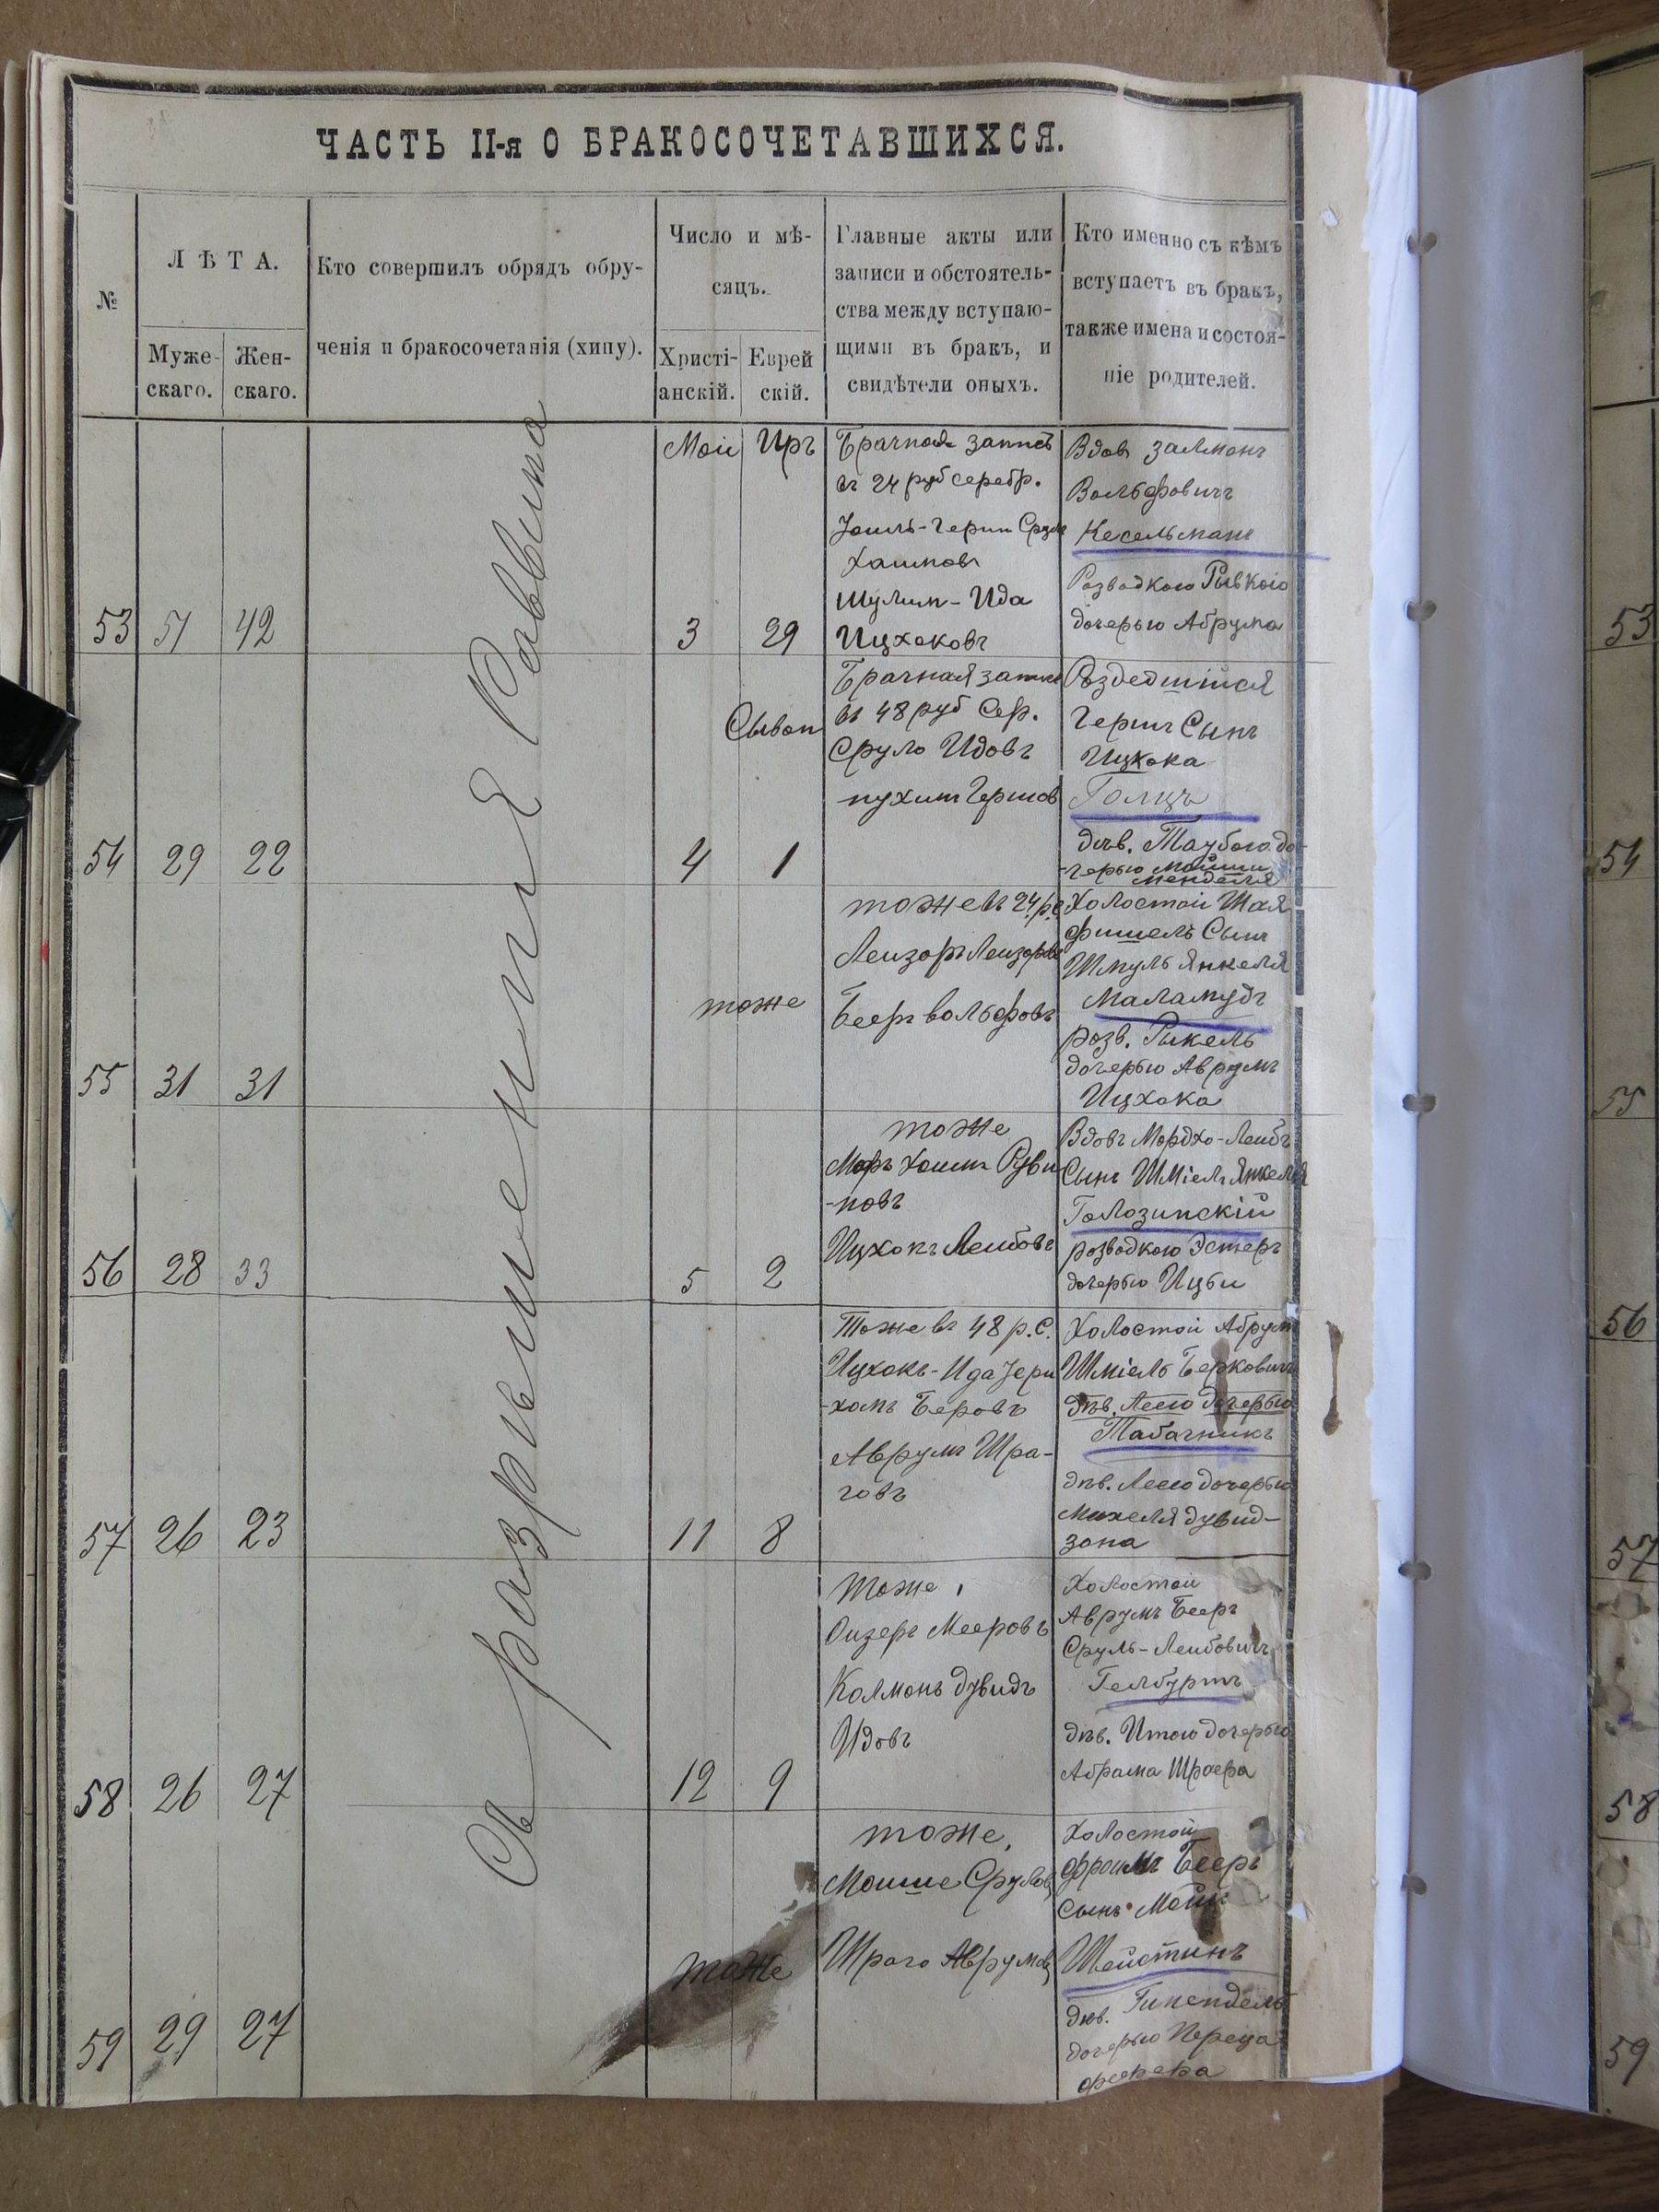 ЧАСТЬ II-я О БРАКОСОЧЕТАВШИХСЯ.
№
ЛѢТА.
Муже-
скаго.
Жен-
скаго.
Кто совершилъ обрядъ обру-
ченія и бракосочетанія (хипу).
Число и мѣ-
сяцъ.
Христі-
анскій.
Еврей
скій.
Главные акты или
записи и обстоятель-
ства между вступаю-
щими въ бракъ, и
свидѣтели оныхъ.
Кто именно съ кѣмъ
вступаетъ въ бракъ,
также имена и состоя-
ніе родителей.
Съ разрешенія Раввина
53 51 42
Маи Иръ
3 29
Брачная запись
въ 24 руб серебр.
Хаимовъ
Шулим-Ида
Ицхоковъ
Вдов Залманъ
Вольфовичъ
Кесельман
Розводкою Рывкою
дочерью Абрума
54 29 22
Сыван
4 1
Брачная запись
въ 48 руб Сер.
Сруло Идовъ
нухим Гершов
Герш Сынъ
Ицхока
Голцъ
дѣв. Таубою до-
-черью Мойши
Менделя
55 31 31
тоже
тоже въ 24 р.с
Лейзоръ Лейзоровъ
Бееръ вольфовъ
Холостой Шая
фишель Сынъ
Шмуль Янкеля
Маламудъ
розв. Рыкель
дочерью Аврумъ
Ицхока
56 28 33
5 2
тоже
Хаимъ Руви
-новъ
Ицхокъ Лейбовъ
Вдовъ Мордхо-Лейбъ
Сынъ Шміелъ Янкеля
Голозинскій
розводкою Эстеръ
дочерью Ицьи
57 26 23
11 8
Тоже въ 48 р.С.
Ицхокъ-Ида Іери
-хамъ Беровъ
Аврумъ Шра-
говъ
Холостой Абрумъ
Шміель Берковичъ
дѣв. Леею дочерью
Табачникъ
дѣв. Леею дочерью
Михеля дувид-
зона
58 26 27
12 9
тоже,
Оизеръ Мееровъ
Калманъ Дувидъ
Идовъ
Холостой
Аврумъ Бееръ
Сруль-Лейбовичъ
Гелбуртъ
дѣв. Итою дочерью
Абрама Шраера
59 29 27
тоже
тоже,
Моише Срулов
Шраго Аврумов
Холостой
Фроимъ Бееръ
сынъ
Шейстинъ
дѣв.
дочерью Переца